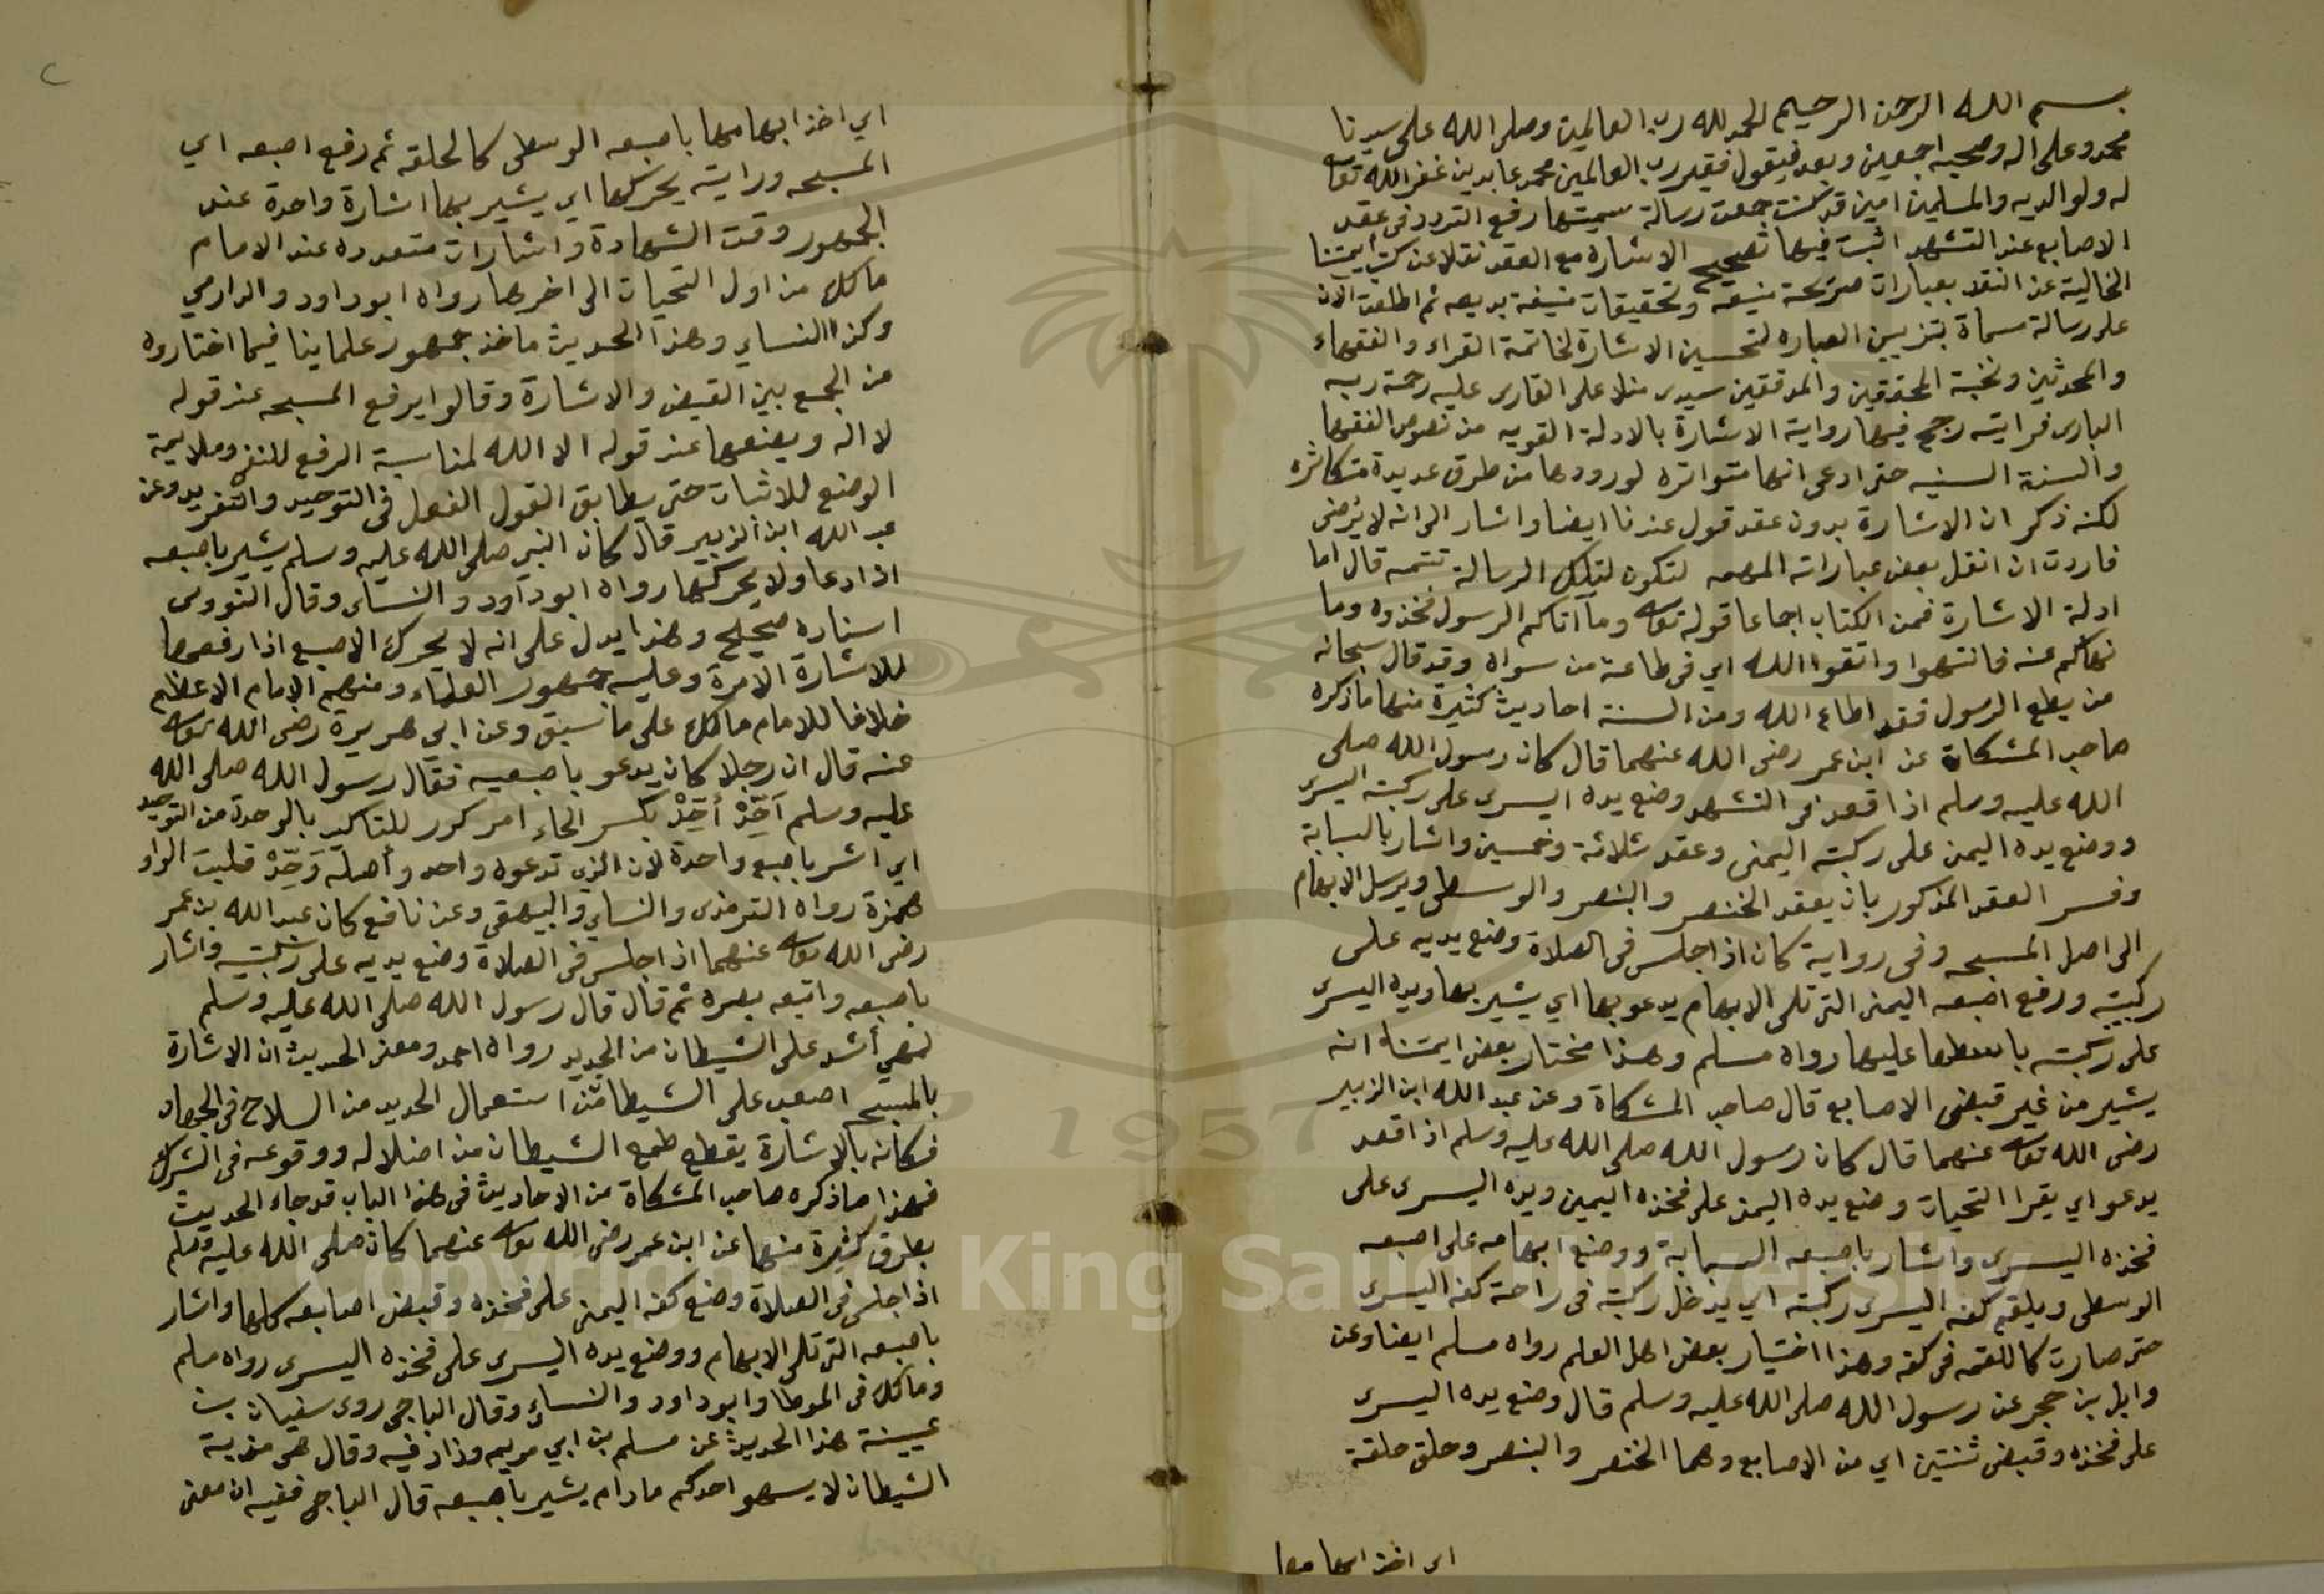 بسم الله الرحمن الرحيم الحمد لله رب العالمين وصلى الله على سيدنا
محمد وعلى اله وصحبه اجمعين وبعد فيقول فقير رب العالمين محمد عابدين غفر الله تعا
له ولوالديه والمسلمين امين قد كنت جمعت رسالة سميتها رفع التردد في عقد
الاصابع عند التشهد اثبت فيها تصحيح الاشارة مع العقد نقلا عن كتب ايمتنا
الخالية عن النقد بعبارات صريحة منيعة وتحقيقات منيفة بديعه ثم اطلعت الان
على رسالة مسماة بتزيين العباره لتحسين الاشارة لخاتمة القراء والفقهاء
والمحدثين ونخبة المحققين والمدققين سيدى منلا على القارى عليه رحمة ربه
البارى فرايته رجح فيها رواية الاشارة بالادلة القويه من نصوص الفقها
والسنة السنيه حتى ادعى انها متواتره لورودها من طرق عديدة متكاثره
لكنه ذكر ان الاشارة بدون عقد قول عندنا ايضا واشار الى انه لا يُرضى
فاردت ان انقل بعض عباراته المهمه لتكون لتلك الرسالة تتمه قال اما
ادلة الاشارة فمن الكتاب اجماعا قوله تعا وما آتاكم الرسول فخذوه وما
نهاكم عنه فانتهوا واتقوا الله اي في طاعة من سواه وقد قال سبحانه
من يطع الرسول فقد اطاع الله ومن السنة احاديث كثيرة منها ماذكره
صاحب المشكاة عن ابن عمر رضى الله عنهما قال كان رسول الله صلى
الله عليه وسلم اذا قعد فى التشهد وضع يده اليسرى على ركبته اليسرى
ووضع يده اليمن على ركبته اليمنى وعقد ثلاثة وخمسين واشار بالسبابة
وفسر العقد المذكور بان يعقد الخنصر والبنصر والوسطى ويرسل الابهام
الى اصل المسبحه وفى رواية كان اذا جلس فى الصلاة وضع يديه على
ركبتيه ورفع اصبعه اليمنى التى تلى الابهام يدعو بها اي يشير بها ويده اليسرى
على ركبته باسطها عليها رواه مسلم وهذا مختار بعض ايمتنا انه
يشير من غير قبض الاصابع قال صاحب المشكاة وعن عبد الله ابن الزبير
رضى الله تعا عنهما قال كان رسول الله صلى الله عليه وسلم اذا قعد
يدعو اي يقرا التحيات وضع يده اليمنى على فخذه اليمين ويده اليسرى على
فخذه اليسرى واشار باصبعه السبابة ووضع ابهامه على اصبعه
الوسطى ويلقم كفه اليسرى ركبته اي يدخل ركبته في راحة كفه اليسرى
حتى صارت كاللقمه فى كفه وهذا اختيار بعض اهل العلم رواه مسلم ايضا وعن
وايل بن حجر عن رسول الله صلى الله عليه وسلم قال وضع يده اليسرى
على فخذه وقبض ثنتين اي من الاصابع وهما الخنصر والبنصر وحلق حلقة
اى اخذ ابهامها
اي اخذ ابهامها باصبعه الوسطى كالحلقه ثم رفع اصبعه اي
المسبحه ورايته يحركها اي يشير بها اشارة واحدة عند
الجمهور وقت الشهادة واشارات متعدده عند الامام
مالك من اول التحيات الى اخرها رواه ابو داود والدارمي
وكذا النساي وهذا الحديث ماخذ جمهور علماينا فيما اختاروه
من الجمع بين القبض والاشارة وقالوا يرفع المسبحه عند قوله
لا اله ويضعها عند قوله الا الله لمناسبة الرفع للنفى وملايمة
الوضع للاثبات حتى يطابق القول الفعل فى التوحيد والتفريد وعن
عبد الله ابن الزبير قال كان النبى صلى الله عليه وسلم يشير باصبعه
اذا دعا ولا يحركها رواه ابو داود والنساى وقال النووى
اسناده صحيح وهذا يدل على انه لا يحرك الاصبع اذا رفعها
للاشارة الا مرة وعليه جمهور العلماء ومنهم الامام الاعظم
خلافا للامام مالك على ما سبق وعن ابي هريرة رضى الله تعا
عنه قال ان رجلا كان يدعو باصبعيه فقال رسول الله صلى الله
عليه وسلم أَحِّدْ أَحِّدْ بكسر الحاء امر كرر للتاكيد بالوحدة من التوحيد
اي اشر باصبع واحدة لان الذى تدعوه واحد واصله وَحِّدْ قلبت الواو
همزة رواه الترمذى والنساي والبيهقى وعن نافع كان عبد الله بن عمر
رضى الله تعا عنهما اذا جلس فى الصلاة وضع يديه على ركبتيه واشار
باصبعه واتبعه بصره ثم قال قال رسول الله صلى الله عليه وسلم
لهي أشد على الشيطان من الحديد رواه احمد ومعنى الحديث ان الاشارة
بالمسبحه اصعب على الشيطان من استعمال الحديد من السلاح فى الجهاد
فكانه بالاشارة يقطع طمع الشيطان من اضلاله ووقوعه فى الشرك
فهذا ماذكره صاحب المشكاة من الاحاديث فى هذا الباب قد جاء الحديث
بطرق كثيرة منها عن ابن عمر رضى الله تعا عنهما كان صلى الله عليه وسلم
اذا جلس فى الصلاة وضع كفه اليمنى على فخذه وقبض اصابعه كلها واشار
باصبعه التى تلى الابهام ووضع يده اليسرى على فخذه اليسرى رواه مسلم
ومالك فى الموطا وابو داود والنساي وقال الباجى روى سفيان بن
عيينة هذا الحديث عن مسلم بن ابي مريم وزاد فيه وقال هى مذبة
الشيطان لا يسهو احدكم مادام يشير باصبعه قال الباجى ففيه ان معنى
1957
Copyright © King Saud University